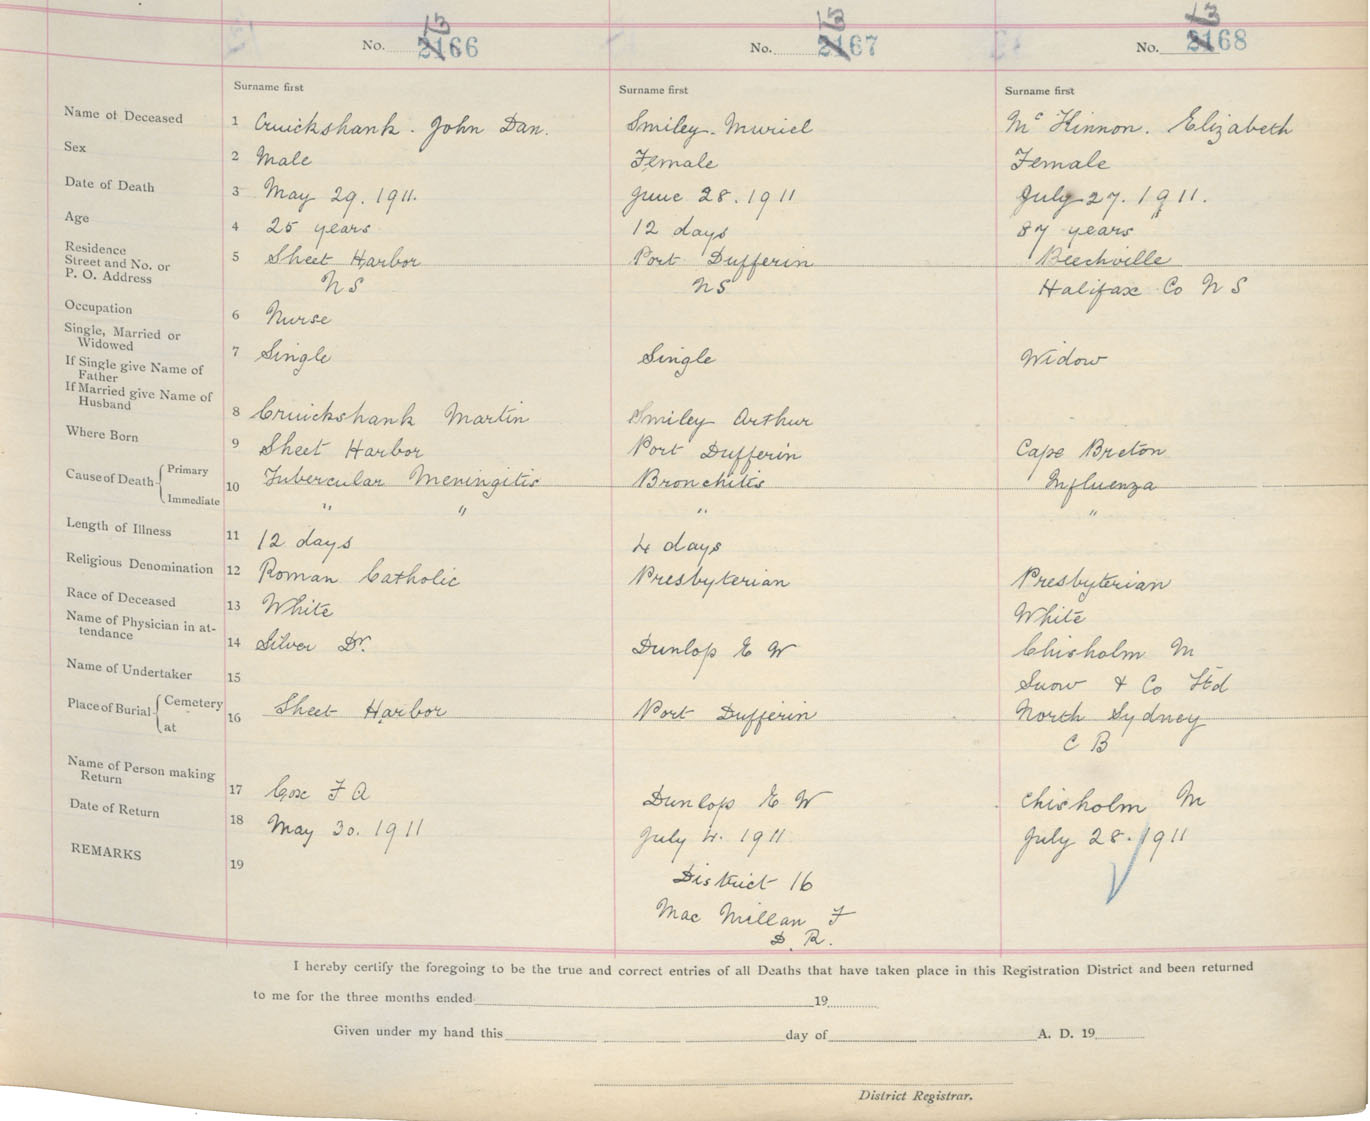 No. 2166 No. 2167 No. 2168
Surname first Surname first Surname first
Name of Deceased 1 Cruickshank. John Dan. Smiley. Muriel Mc Kinnon. Elizabeth
Sex 2 Male Female Female
Date of Death 3 May 29. 1911. June 28. 1911 July 27. 1911.
Age 4 25 years 12 days 87 years
Residence
Street and No. or 5 Sheet Harbor Port Dufferin Beechville
P. O. Address N S N S Halifax Co N S
Occupation 6 Nurse
Single, Married or
Widowed 7 Single Single Widow
If Single give Name of
Father
If Married give Name of
Husband 8 Cruickshank Martin Smiley Arthur
Where Born 9 Sheet Harbor Port Dufferin Cape Breton
Cause of Death Primary 10 Tubercular Meningitis Bronchitis Influenza
Immediate " " " "
Length of Illness 11 12 days 4 days
Religious Denomination 12 Roman Catholic Presbyterian Presbyterian
Race of Deceased 13 White White
Name of Physician in at-
tendance 14 Silver Dr. Dunlop E W Chisholm M
Name of Undertaker 15 Snow & Co Ltd
Place of Burial Cemetery 16 Sheet Harbor Port Dufferin North Sydney
at C B
Name of Person making
Return 17 Cox F A Dunlop E W Chisholm M
Date of Return 18 May 30. 1911 July 4. 1911 July 28. 1911
REMARKS 19 District 16
Mac Millan F
D. R.
I hereby certify the foregoing to be the true and correct entries of all Deaths that have taken place in this Registration District and been returned
to me for the three months ended 19
Given under my hand this day of A. D. 19
District Registrar.